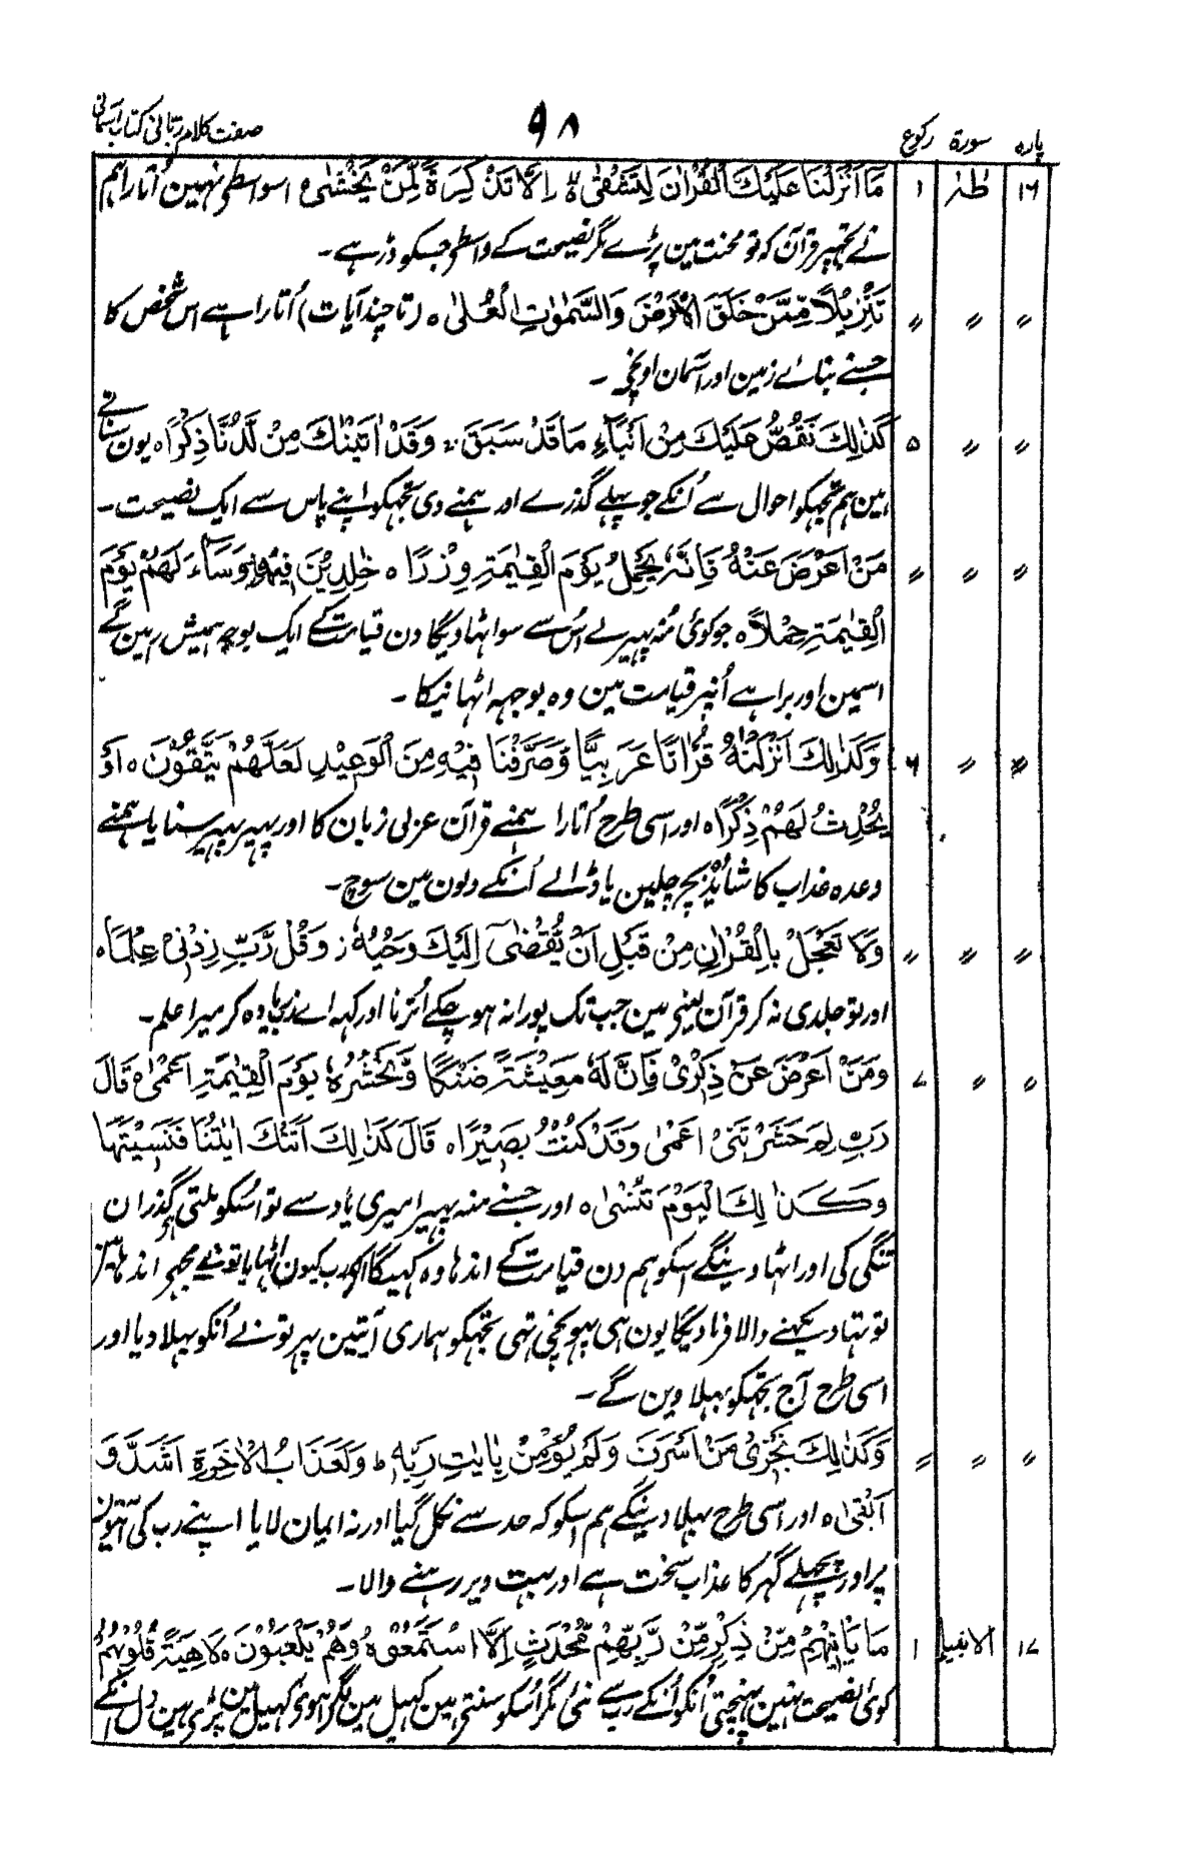 پارہ سورۃ رکوع ۹۸ صفت کلام ربانی کتاب آسمانی
۱۶ طٰہٰ ۱ مَا اَنْزَلْنَا عَلَیْكَ الْقُرْاٰنَ لِتَشْقٰىۙ اِلَّا تَذْكِرَةً لِّمَنْ یَّخْشٰى ہ اسواسطی نہین اُتارا ہم
نے تجہپر قرآن کہ تو محنت مین پڑے مگر نصیحت کے واسطی جسکو ڈر ہے۔
〃 〃 〃 تَنْزِیْلًا مِّمَّنْ خَلَقَ الْاَرْضَ وَالسَّمٰوٰتِ الْعُلٰى ہ (تا چند آیات) اُتارا ہے اس شخص کا
جسنے بنائے زمین اور آسمان اونچے ۔
〃 〃 ۵ كَذٰلِكَ نَقُصُّ عَلَیْكَ مِنْ اَنْۢبَآءِ مَا قَدْ سَبَقَ ۚ وَقَدْ اٰتَیْنٰكَ مِنْ لَّدُنَّا ذِكْرًا ہ یون سناتے
ہین ہم تجہکو احوال سے اُنکے جو پہلے گذرے اور ہمنے دی تجہکو اپنے پاس سے ایک نصیحت۔
〃 〃 〃 مَنْ اَعْرَضَ عَنْهُ فَاِنَّهٗ یَحْمِلُ یَوْمَ الْقِیٰمَةِ وِزْرًا ہ خٰلِدِیْنَ فِیْهِ وَسَآءَ لَهُمْ یَوْمَ
الْقِیٰمَةِ حِمْلًا ہ جو کوئی مُنہ پہیرے اُس سے سو اٹہاویگا دن قیامت کے ایک بوجہ ہمیش رہین گے
اسمین اور برا ہے اُنپر قیامت مین وہ بوجہہ اٹہانیکا ۔
〃 〃 ۶ وَكَذٰلِكَ اَنْزَلْنٰهُ قُرْاٰنًا عَرَبِیًّا وَّصَرَّفْنَا فِیْهِ مِنَ الْوَعِیْدِ لَعَلَّهُمْ یَتَّقُوْنَ ہ اَوْ
یُحْدِثُ لَهُمْ ذِكْرًا ہ اور اسی طرح اُتارا ہمنے قرآن عربی زبان کا اور پہیر پہیر سنایا ہمنے
وعدہ عذاب کا شائد بچ چلین یا ڈالے اُنکے دلون مین سوچ۔
〃 〃 〃 وَلَا تَعْجَلْ بِالْقُرْاٰنِ مِنْ قَبْلِ اَنْ یُّقْضٰۤى اِلَیْكَ وَحْیُهٗ ز وَقُلْ رَّبِّ زِدْنِیْ عِلْمًا ہ
اور تو جلدی نہ کر قرآن لینے مین جب تک پورا نہ ہو چکے اُترنا اور کہہ اے رب زیادہ کر میرا علم۔
〃 〃 ۷ وَمَنْ اَعْرَضَ عَنْ ذِكْرِیْ فَاِنَّ لَهٗ مَعِیْشَةً ضَنْكًا وَّنَحْشُرُهٗ یَوْمَ الْقِیٰمَةِ اَعْمٰى ہ قَالَ
رَبِّ لِمَ حَشَرْتَنِیْ اَعْمٰى وَقَدْ كُنْتُ بَصِیْرًا ہ قَالَ كَذٰلِكَ اَتَتْكَ اٰیٰتُنَا فَنَسِیْتَهَا
وَكَذٰلِكَ الْیَوْمَ تُنْسٰى ہ اور جسنے منہ پہیرا میری یاد سے تو اسکو ملتی گذران
تنگی کی اور اٹہاوینگے اسکو ہم دن قیامت کے اندہا وہ کہیگا اے رب کیون اٹہایا تونے مجہے اندہا مین
تو تہا دیکہنے والا فرماویگا یون ہی پہونچی تہی تجہکو ہماری آیتین پہر تو نے اُنکو بہلا دیا اور
اسی طرح آج تجہکو بہلا دین گے ۔
〃 〃 〃 وَكَذٰلِكَ نَجْزِیْ مَنْ اَسْرَفَ وَلَمْ یُؤْمِنْۢ بِاٰیٰتِ رَبِّهٖ ط وَلَعَذَابُ الْاٰخِرَةِ اَشَدُّ وَ
اَبْقٰى ہ اور اسی طرح بہلا دینگے ہم اسکو کہ حد سے نکل گیا اور نہ ایمان لایا اپنے رب کی آیتون
پر اور پچہلے گہر کا عذاب سخت ہے اور بہت دیر رہنے والا۔
۱۷ الانبیا ۱ مَا یَاْتِیْهِمْ مِّنْ ذِكْرٍ مِّنْ رَّبِّهِمْ مُّحْدَثٍ اِلَّا اسْتَمَعُوْهُ وَهُمْ یَلْعَبُوْنَ ہ لَاهِیَةً قُلُوْبُهُمْ
کوئی نصیحت نہین پہنچتی اُنکو اُنکے رب سے نئی مگر اُسکو سنتے ہین کہیل مین لگے ہوئے کہیل مین پڑے ہین دل اُنکے